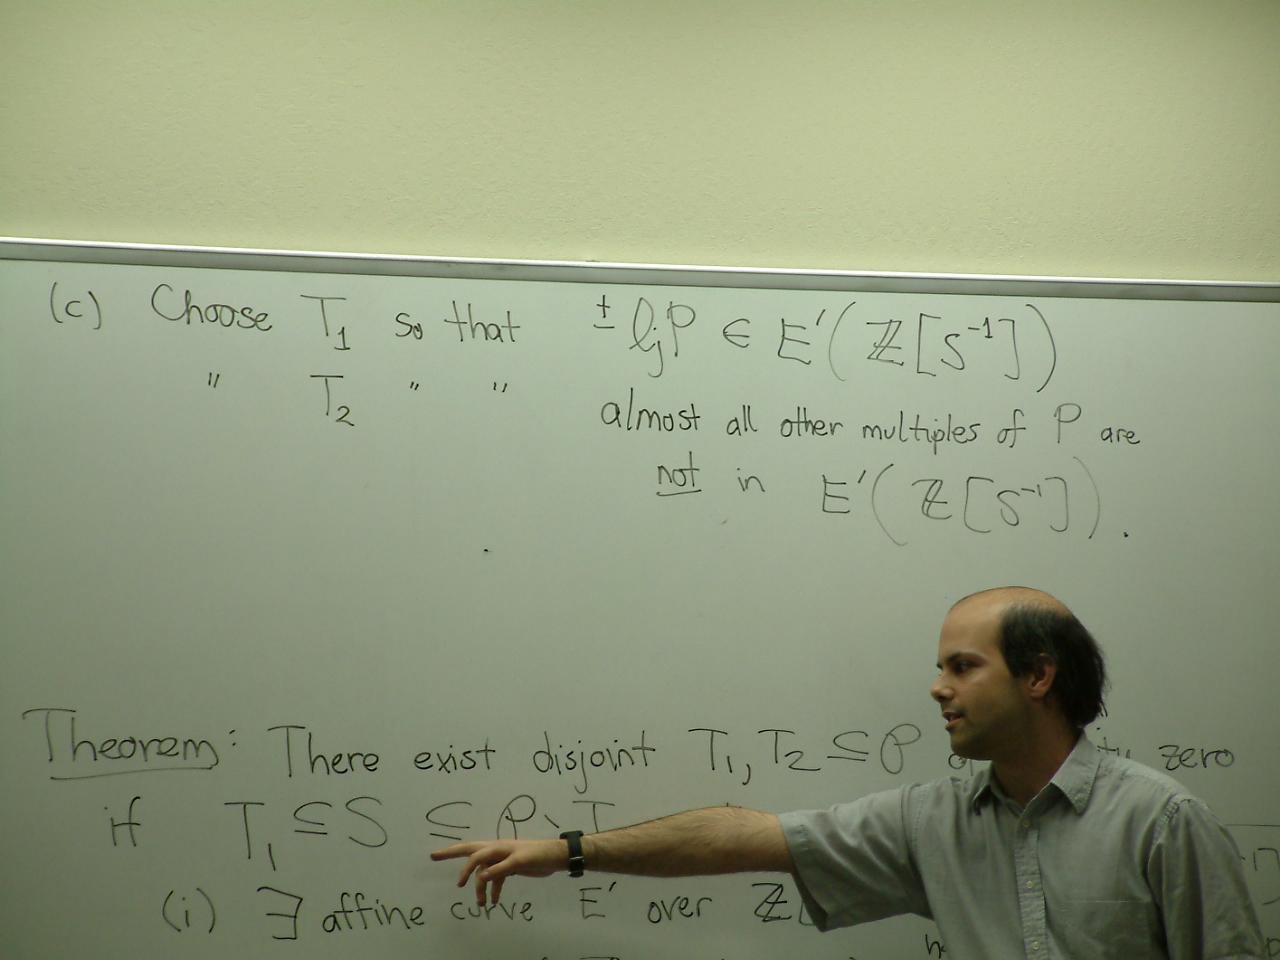 (c) Choose T₁ so that ± ℓⱼP ∈ E′(ℤ[S⁻¹])
" T₂ " " almost all other multiples of P are
not in E′(ℤ[S⁻¹]).
Theorem: There exist disjoint T₁, T₂ ⊆ 𝒫 zero
if T₁ ⊆ S ⊆ 𝒫 \ T
(i) ∃ affine curve E′ over ℤ[